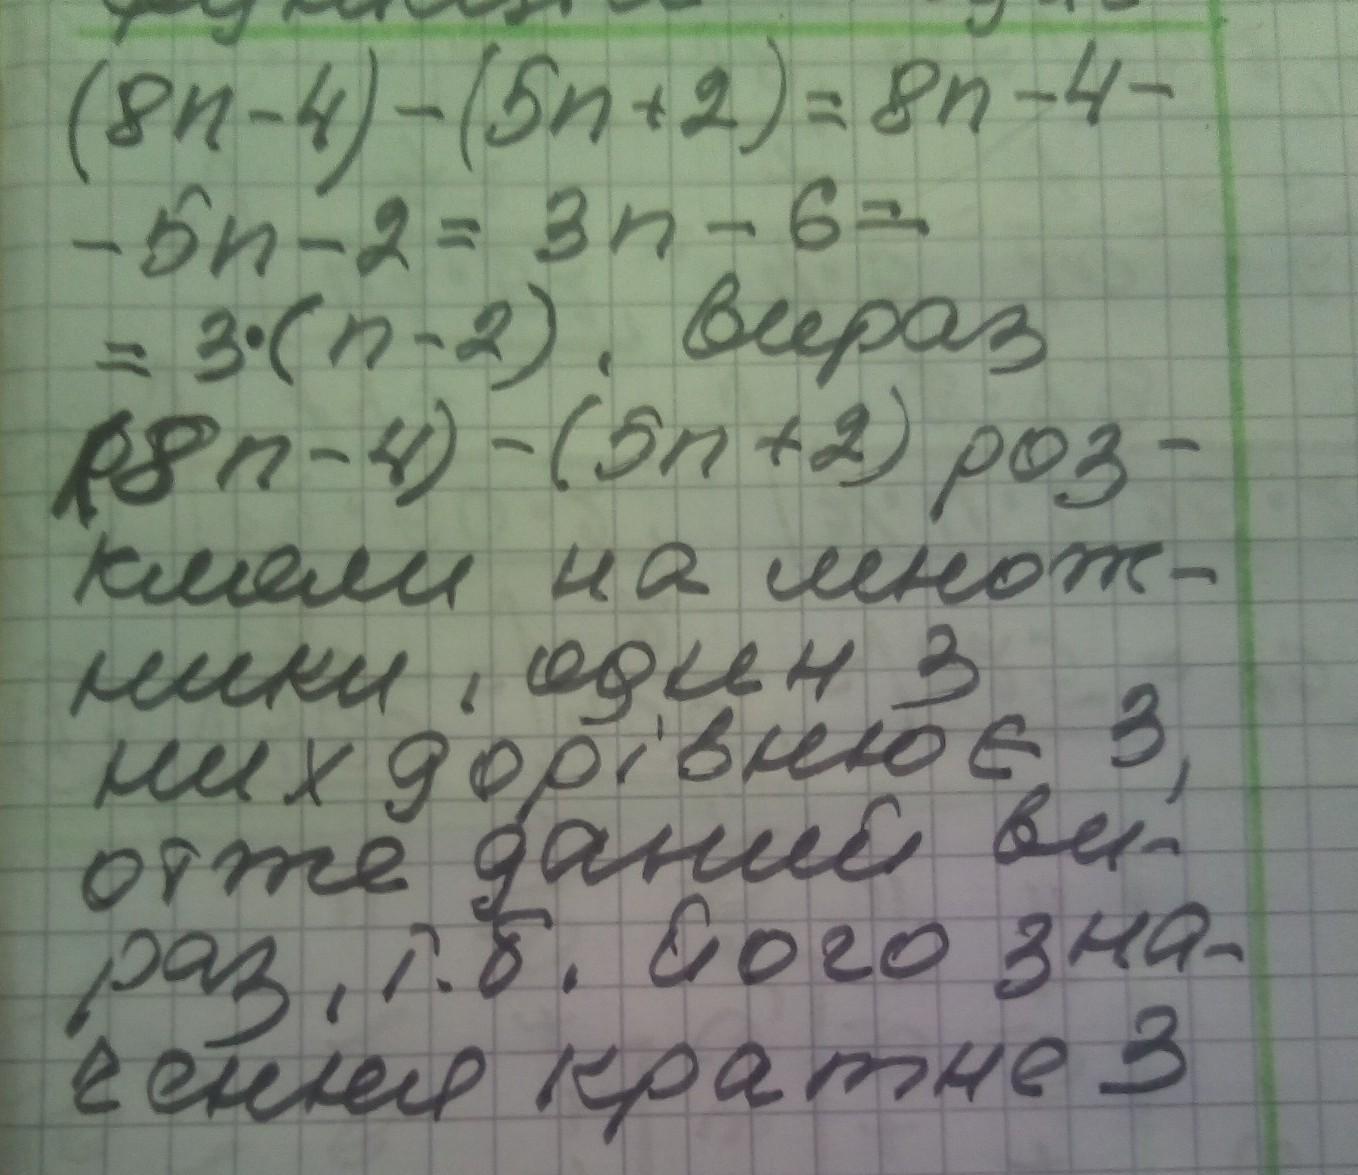 (8n-4)-(5n+2)=8n-4-
-5n-2= 3n-6=
= 3·(n-2). Вираз
(8n-4)-(5n+2) роз-
клали на множ-
ники, один з
них дорівнює 3,
отже даний ви-
раз, т.б. його зна-
чення кратне 3